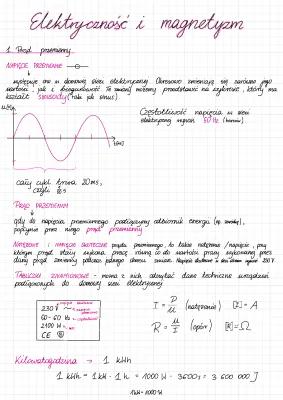 Elektryczność i magnetyzm
1. Prąd przemienny
NAPIĘCIE PRZEMIENNE
występuje ono w domowej sieci elektrycznej. Okresowo zmienia się zarówno jego
wartość, jak i biegunowość. Te zmiany możemy przedstawić na wykresie, który ma
kształt sinusoidy (taki jak sinus).
Częstotliwość napięcia w sieci
elektrycznej wynosi 50 Hz (herców)
u[V]
t[ms]
cały cykl trwa 20ms,
czyli
PRĄD PRZEMIENNY
gdy do napięcia przemiennego podłączymy odbiornik energii (np. żarówkę),
popłynie przez niego prąd przemienny
NATĘŻENIE I NAPIĘCIE SKUTECZNE prądu przemiennego, to takie natężenie/napięcie, przy
którym prąd stały wykona pracę równą co do wartości pracy wykonanej przez
dany prąd zmienny podczas jednego okresu. Napięcie skuteczne w sieci domowej wynosi 230 V
TABLICZKI ZNAMIONOWE - można z nich odczytać dane techniczne urządzeń
podłączonych do domowej sieci elektrycznej
230 V
50-60 Hz
2100 W
CE
I = P/U (natężenie) [I] = A
R = U/I (opór) [R] = Ω
Kilowatogodzina → 1 kWh
1 kWh = 1kW · 1h = 1000 W · 3600s = 3 600 000 J
1kW = 1000 W